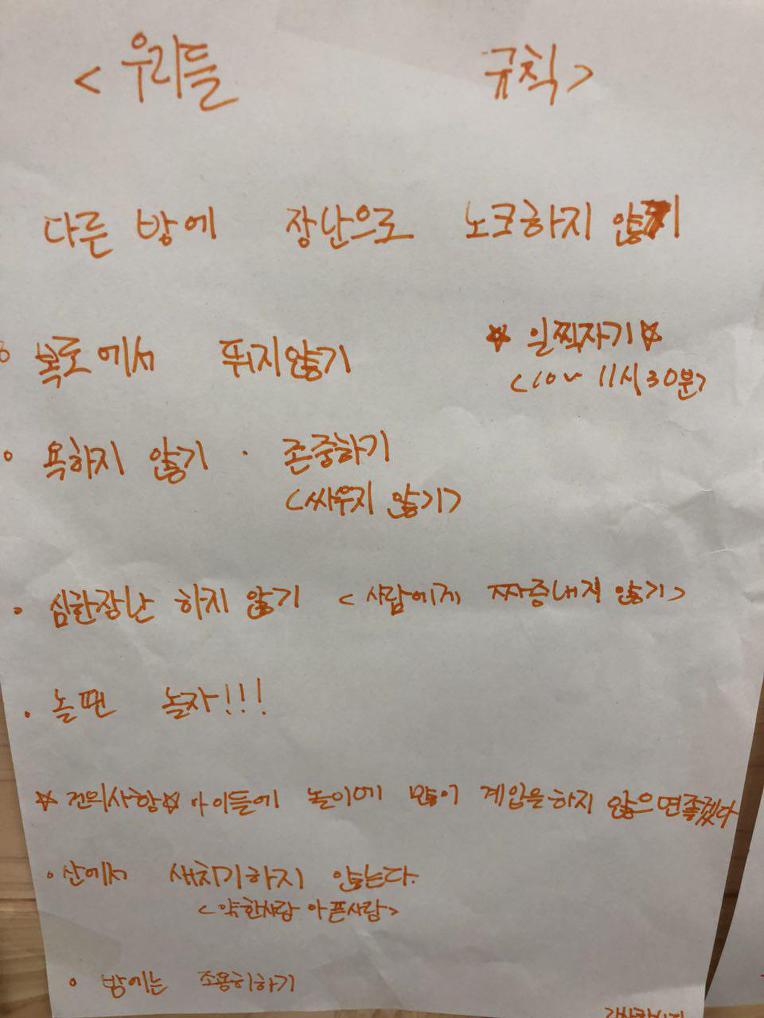 <우리들 규칙>
다른 방에 장난으로 노크하지 않기
복도에서 뛰지않기
☆ 일찍자기☆
<10~ 11시30분>
욕하지 않기 · 존중하기
<싸우지 않기>
· 심한장난 하지 않기 <사람에게 짜증내지 않기>
· 놀땐 놀자!!!
☆건의사항☆ 아이들에 놀이에 많이 계입을하지 않으면좋겠다
· 산에서 새치기하지 않는다.
<약한사람 아픈사람>
· 밤에는 조용히하기